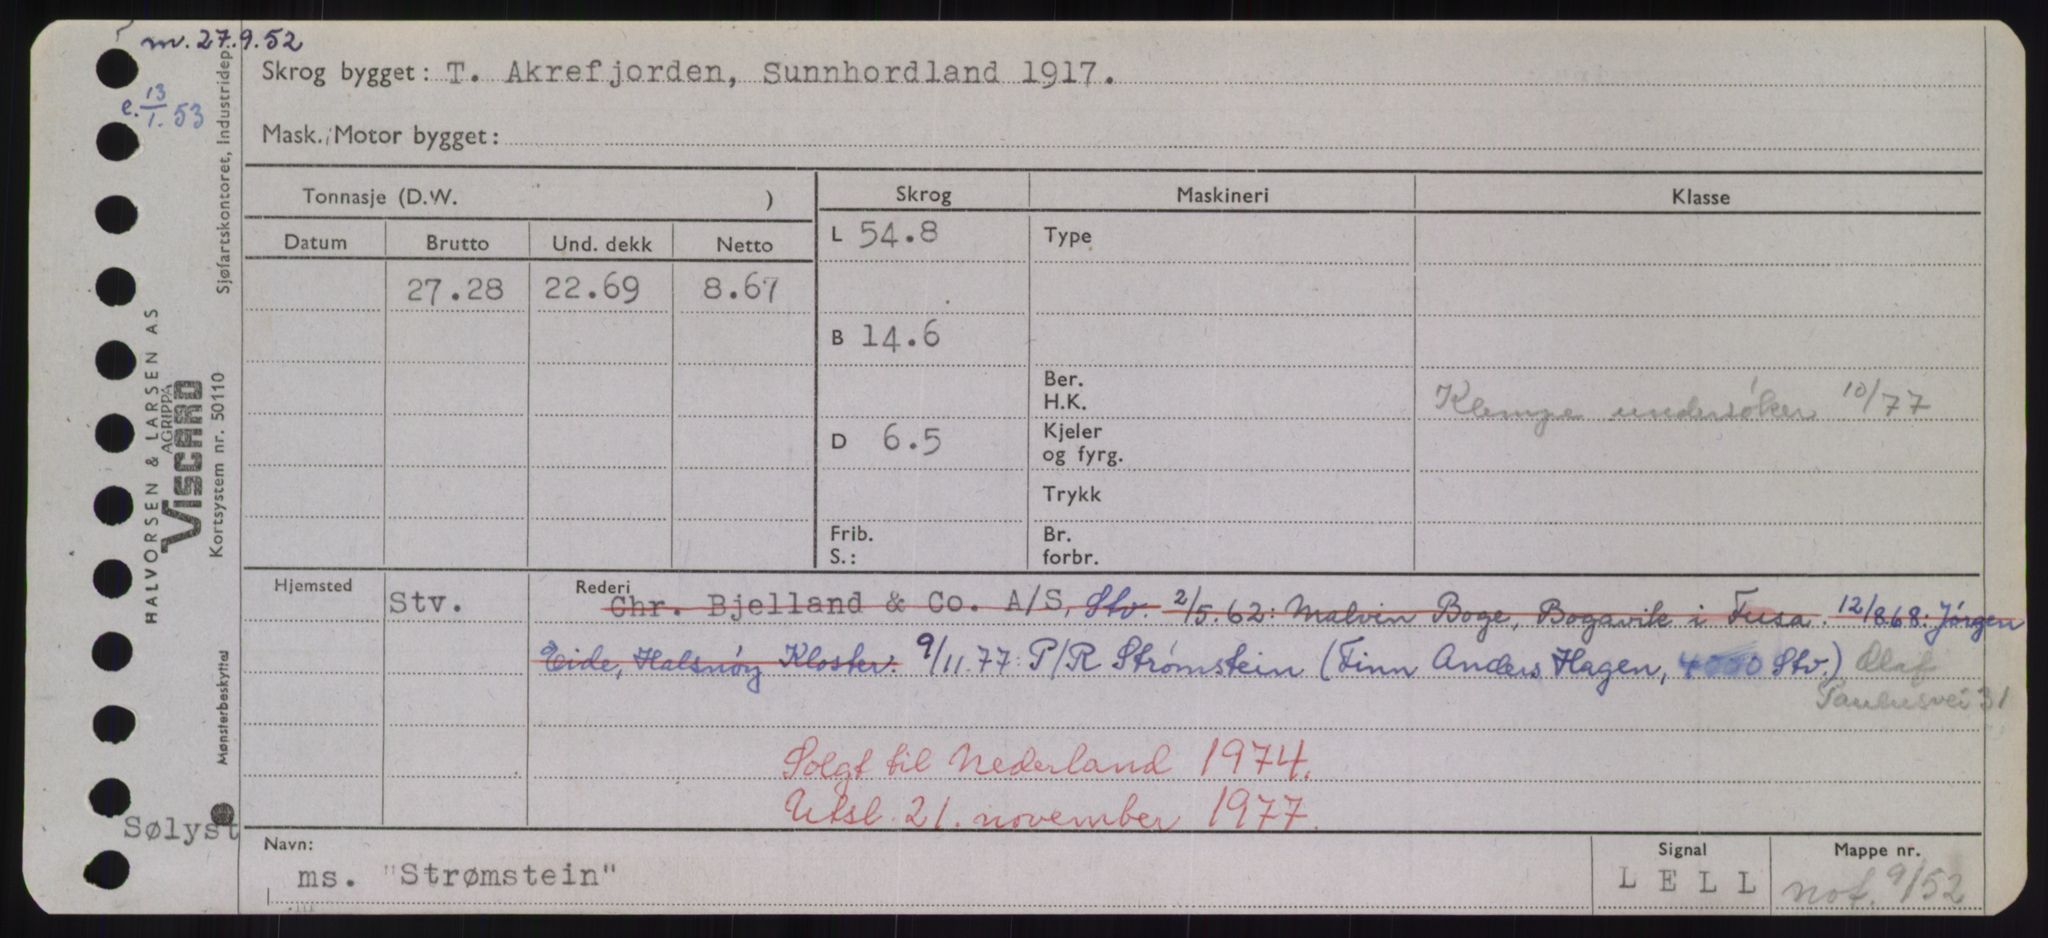 m. 27.9.52
e. 13/1. 53
Skrog bygget: T. Akrefjorden, Sunnhordland 1917.
Mask./Motor bygget:
Tonnasje (D.W. )
Skrog
Maskineri
Klasse
Datum
Brutto
Und. dekk
Netto
L 54.8
Type
27.28
22.69
8.67
B 14.6
Ber.
H.K.
Klempe undersøker 10/77
D 6.5
Kjeler
og fyrg.
Trykk
Frib.
S.:
Br.
forbr.
Hjemsted
Stv.
Rederi
Chr. Bjelland & Co. A/S, Stv. 2/5.62: Malvin Boge, Bogavik i Fusa. 12/8.68: Jørgen
Eide, Halsnøy Kloster. 9/11.77: P/R Strømstein (Finn Anders Hagen, 4000 Stv.) Olaf
Paulusvei 31
Solgt til Nederland 1974.
Utsl. 21. november 1977.
Sølyst
Navn:
ms. "Strømstein"
Signal
L E L L
Mappe nr.
not. 9/52
Sjøfartskontoret, Industridep
HALVORSEN & LARSEN AS
AGRIPPA
VISCARD
Kortsystem nr. 50110
Mønsterbeskyttet